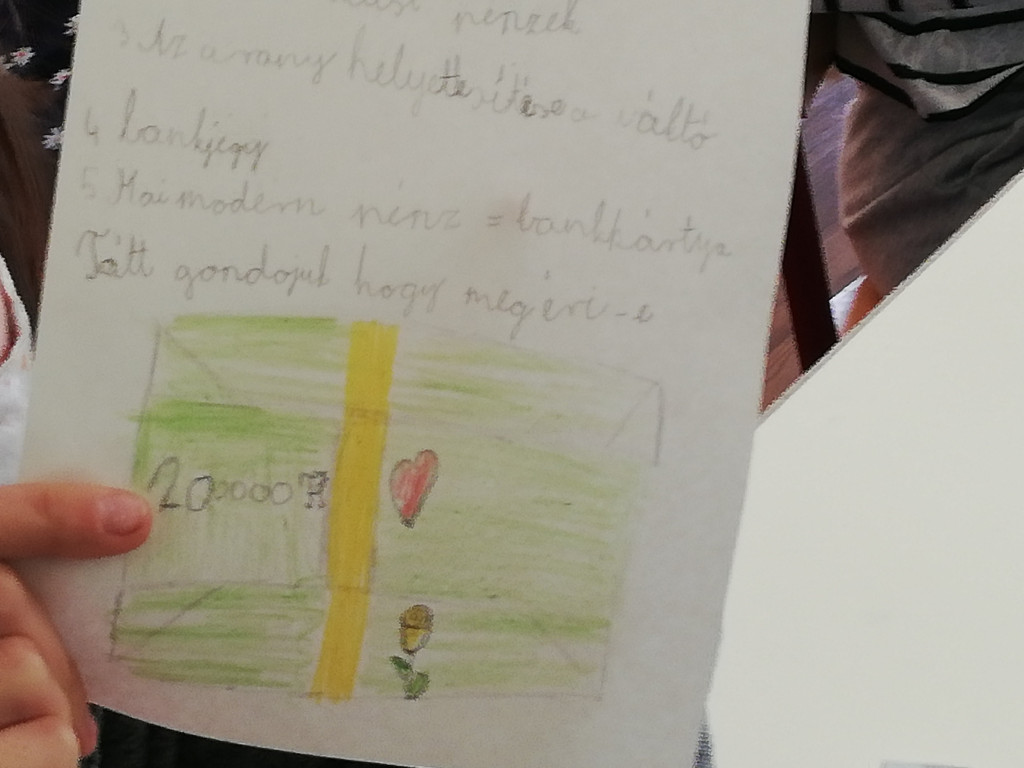 pénzek
3 Az arany helyettesítése a váltó
4 bankjegy
5 Mai modern pénz = bankkártya
Tátt gondojuk hogy megéri-e
200000 Ft